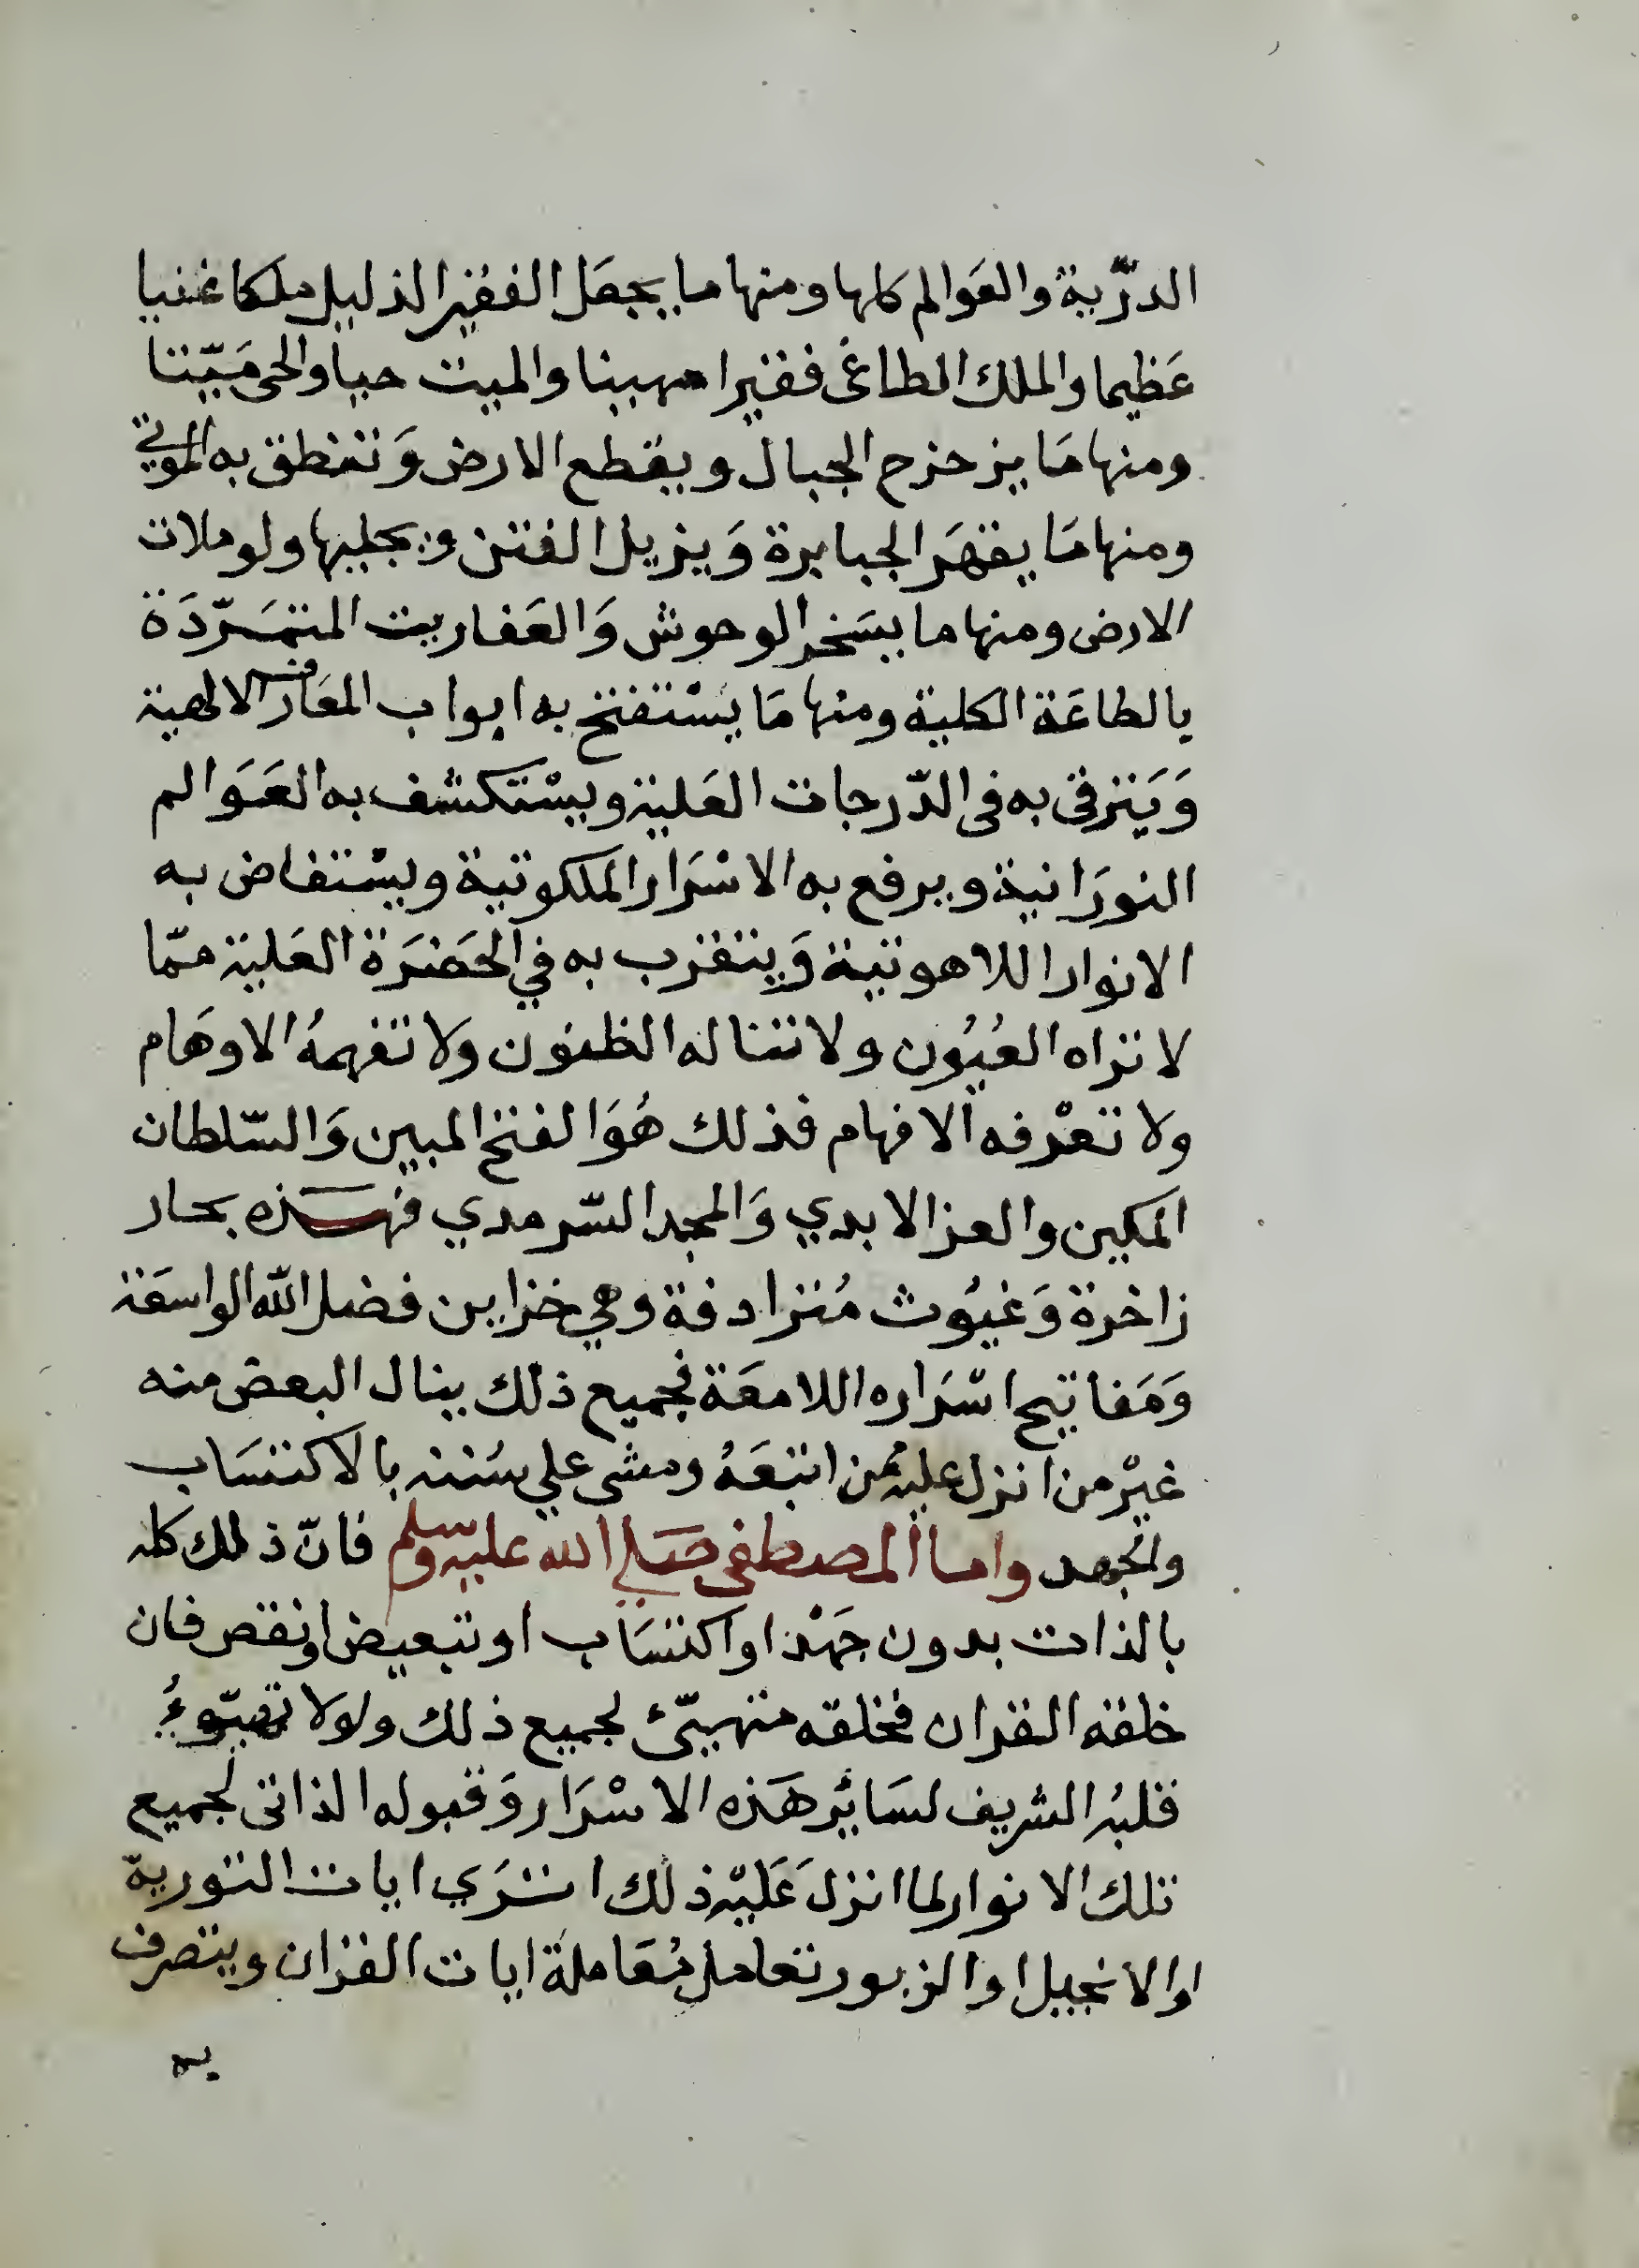 الدرّية والعَوالم كلها ومنها ما يجعَل الفقير الذليل ملكا غنيا
عَظيما والملك الطاغى فقيرا مهينا والميت حيا والحى مَيّتا
ومنها مَا يزحزح الجبال ويقطع الارض وَتنطق به الموتي
ومنها مَا يقهَر الجبابرة وَيزيل الفتن ويجليها ولو ملات
الارض ومنها ما يسَخر الوحوش وَالعَفاريت المتمَرّدَة
بالطاعَة الكلية ومنها مَا يسْتفتح به ابواب المعَارف الالهية
وَيَترقى به فى الدّرجات العَلية ويسْتكشف به العَوَالم
النورَانية ويرفع به الاسْرَار الملكوتية ويسْتفاض به
الانوار اللاهوتية وَيتقرب به في الحَضرَة العَلية ممّا
لا تراه العُيُون ولا تناله الظنون ولا تفهمهُ الاوهَام
ولا تعْرفه الافهام فذلك هُوَ الفتح المبين وَالسّلطان
المكين والعز الابدي وَالمجد السّرمدي فهذه بحار
زاخرة وَغيُوث مُترادفة وهي خزاين فضل الله الواسعَة
وَمَفاتيح اسْرَاره اللامعَة فجميع ذلك ينال البعض منه
غيْر من انزل عليه ممن اتبَعَهُ ومشى علي سُننه بالاكتسَاب
والجهد واما المصطفى صَلي الله عليه وسلم فانّ ذلك كله
بالذات بدون جهْد او اكتسَاب او تبعيض او نقص فان
خلقه القران فخلقه متهيّئ لجميع ذلك ولولا تهيّوءُ
قلبهُ الشريف لسَائر هَذه الاسْرَار وَقبوله الذاتى لجميع
تلك الانوار لما انزل عَليْه ذلك اترَي ايات التورية
او الانجيل او الزبور تعامل مُعَاملة ايات القران ويتصرف
به